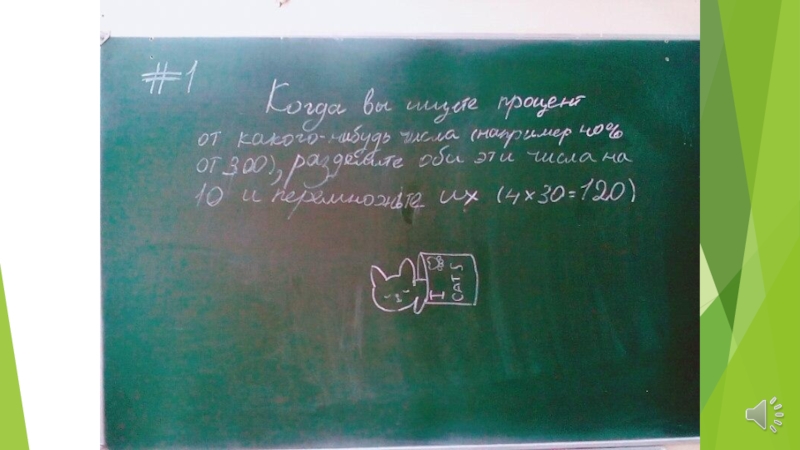 #1
Когда вы ищете процент
от какого-нибудь числа (например 40%
от 300), разделите оби эти числа на
10 и перемножьте их (4×30=120)
I
CATS